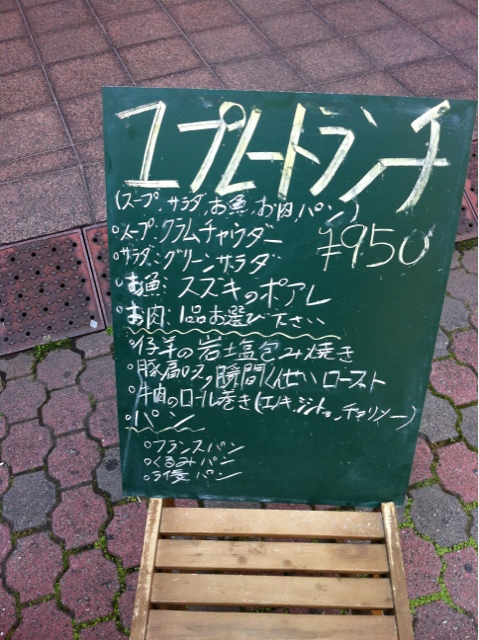 1プレートランチ
(スープ、サラダ、お魚、お肉、パン)
¥950
○スープ:クラムチャウダー
○サラダ:グリーンサラダ
○お魚:スズキのポアレ
○お肉:1品お選び下さい
○仔羊の岩塩包み焼き
○豚肩ロースの瞬間くんせいロースト
○牛肉のロール巻き(エノキ、
○パン
○フランスパン
○くるみパン
○ライ麦パン